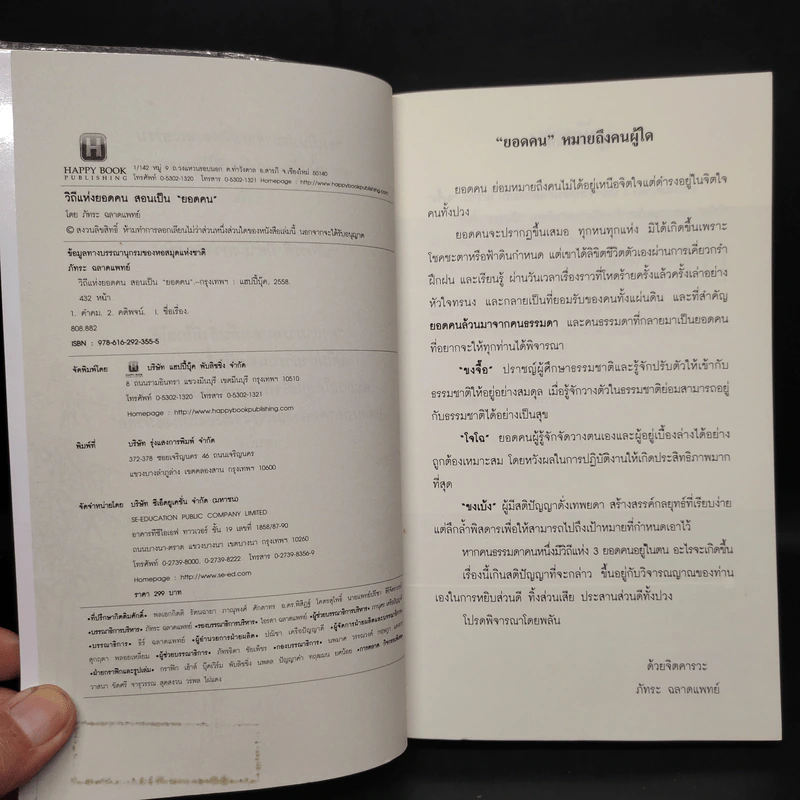 HAPPY BOOK
PUBLISHING
1/142 หมู่ 9 ถ.วงแหวนรอบนอก ต.ท่าวังตาล อ.สารภี จ.เชียงใหม่ 50140
โทรศัพท์ 0-5302-1320 โทรสาร 0-5302-1321 Homepage : http://www.happybookpublishing.com
วิถีแห่งยอดคน สอนเป็น "ยอดคน"
โดย ภัทระ ฉลาดแพทย์
© สงวนลิขสิทธิ์ ห้ามทำการลอกเลียนไม่ว่าส่วนหนึ่งส่วนใดของหนังสือเล่มนี้ นอกจากจะได้รับอนุญาต
ข้อมูลทางบรรณานุกรมของหอสมุดแห่งชาติ
ภัทระ ฉลาดแพทย์
วิถีแห่งยอดคน สอนเป็น "ยอดคน".--กรุงเทพฯ : แฮปปี้บุ๊ค, 2558.
432 หน้า
1. คำคม. 2. คติพจน์. I. ชื่อเรื่อง.
808.882
ISBN : 978-616-292-355-5
จัดพิมพ์โดย
บริษัท แฮปปี้บุ๊ค พับลิชชิ่ง จำกัด
8 ถนนรามอินทรา แขวงมีนบุรี เขตมีนบุรี กรุงเทพฯ 10510
โทรศัพท์ 0-5302-1320 โทรสาร 0-5302-1321
Homepage : http://www.happybookpublishing.com
พิมพ์ที่
บริษัท รุ่งแสงการพิมพ์ จำกัด
372-378 ซอยเจริญนคร 46 ถนนเจริญนคร
แขวงบางลำภูล่าง เขตคลองสาน กรุงเทพฯ 10600
จัดจำหน่ายโดย
บริษัท ซีเอ็ดยูเคชั่น จำกัด (มหาชน)
SE-EDUCATION PUBLIC COMPANY LIMITED
อาคารทีซีไอเอฟ ทาวเวอร์ ชั้น 19 เลขที่ 1858/87-90
ถนนบางนา-ตราด แขวงบางนา เขตบางนา กรุงเทพฯ 10260
โทรศัพท์ 0-2739-8000, 0-2739-8222 โทรสาร 0-2739-8356-9
Homepage : http://www.se-ed.com
ราคา 299 บาท
•ที่ปรึกษากิตติมศักดิ์• พลเอกกิตติ รัตนฉายา ภาณุพงศ์ ศักดาทร อ.ดร.พิสิฏฐ์ โคตรสุโพธิ์
•บรรณาธิการบริหาร• ภัทระ ฉลาดแพทย์ •รองบรรณาธิการบริหาร• ไอรดา ฉลาดแพทย์ •ผู้ช่วยบรรณาธิการบริหาร•
•บรรณาธิการ• ธีร์ ฉลาดแพทย์ •ผู้อำนวยการฝ่ายผลิต• ปณิชา เครือปัญญาดี
สุกฤตา พลอยเหลี่ยม •ผู้ช่วยบรรณาธิการ• ภัทรธิดา ชัยเพ็ชร •กองบรรณาธิการ•
•ฝ่ายกราฟิกและรูปเล่ม• กราฟิก เฮ้าส์ บุ๊ควีร์ม พับลิชชิ่ง
"ยอดคน" หมายถึงคนผู้ใด
ยอดคน ย่อมหมายถึงคนไม่ได้อยู่เหนือจิตใจแต่ดำรงอยู่ในจิตใจ
คนทั้งปวง
ยอดคนจะปรากฏขึ้นเสมอ ทุกหนทุกแห่ง มิได้เกิดขึ้นเพราะ
โชคชะตาหรือฟ้าดินกำหนด แต่เขาได้ลิขิตชีวิตตัวเองผ่านการเคี่ยวกรำ
ฝึกฝน และเรียนรู้ ผ่านวันเวลาเรื่องราวที่โหดร้ายครั้งแล้วครั้งเล่าอย่าง
หัวใจทรนง และกลายเป็นที่ยอมรับของคนทั้งแผ่นดิน และที่สำคัญ
ยอดคนล้วนมาจากคนธรรมดา และคนธรรมดาที่กลายมาเป็นยอดคน
ที่อยากจะให้ทุกท่านได้พิจารณา
"ขงจื๊อ" ปราชญ์ผู้ศึกษาธรรมชาติและรู้จักปรับตัวให้เข้ากับ
ธรรมชาติให้อยู่อย่างสมดุล เมื่อรู้จักวางตัวในธรรมชาติย่อมสามารถอยู่
กับธรรมชาติได้อย่างเป็นสุข
"โจโฉ" ยอดคนผู้รู้จักจัดวางตนเองและผู้อยู่เบื้องล่างได้อย่าง
ถูกต้องเหมาะสม โดยหวังผลในการปฏิบัติงานให้เกิดประสิทธิภาพมาก
ที่สุด
"ขงเบ้ง" ผู้มีสติปัญญาดั่งเทพยดา สร้างสรรค์กลยุทธ์ที่เรียบง่าย
แต่ลึกล้ำพิสดารเพื่อให้สามารถไปถึงเป้าหมายที่กำหนดเอาไว้
หากคนธรรมดาคนหนึ่งมีวิถีแห่ง 3 ยอดคนอยู่ในตน อะไรจะเกิดขึ้น
เรื่องนี้เกินสติปัญญาที่จะกล่าว ขึ้นอยู่กับวิจารณญาณของท่าน
เองในการหยิบส่วนดี ทิ้งส่วนเสีย ประสานส่วนดีทั้งปวง
โปรดพิจารณาโดยพลัน
ด้วยจิตคารวะ
ภัทระ ฉลาดแพทย์